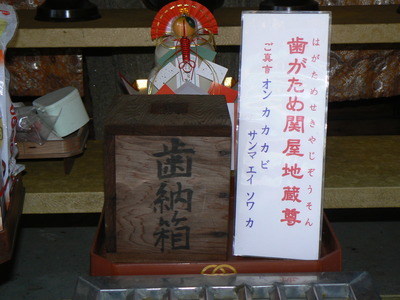 はがためせきやじぞうそん
歯がため関屋地蔵尊
ご真言 オン カ カ カ ビ
サンマ エイ ソワ カ
歯納箱